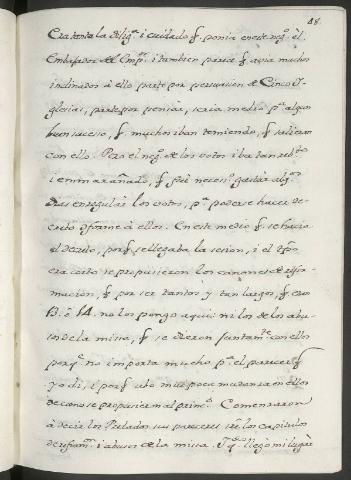 48.
Era tanta la dilig.ª i cuidado q̃ ponia en este neg.º el
Embajador del Emp.or i tambien parce q̃ avia muchos
inclinados à ello parte por persuasion de Cinco I-
glesias, parte por pensar, seria medio p.ª algun
buen suceso, q̃ muchos iban temiendo, q̃ saliesen
con ello. Pero el neg.º de los votos iba tan
i enmarañado, q̃ fuè neces.º gastar alg.os
dias en regular los votos, p.ª poderse hacer de-
creto conforme à ellos. En este medio q̃ se hacia
el decreto, porq̃ se llegaba la sesion, i el tp̃o
era corto se propusieron los canones de refor-
macion, q̃ por ser tantos y tan largos, q̃ eran
13. ò 14. no los pongo aqui: ni los de los abu-
sos de la missa, q̃ se dieron juntam.te con ellos
porq̃ no importa mucho p.ª el parecer q̃
yo di, i porq̃ ubo mui poca mudanza en ellos
de como se propusieron al princ.º Comenzaron
à decir los Prelados sus pareceres sre los capitulos
de refram.n i abusos de la missa. I q.do llegò mi lugar